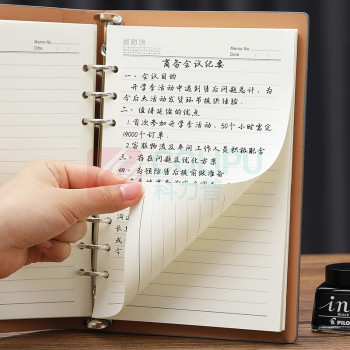 Memo No.
Date
Memo No.
Date
商务会议纪要
一、会议目的
开学季活动中遇到售后问题总计，为
今后大活动发货环节提供经验。
二、值得延伸的优点
1.首次参加开学季活动，50个小时需完
19000个订单
2.客服物流及车间工作人员积极配合
三、存在问题及优化方案
四、为强防售后提前做准备
科力普
in
PILO